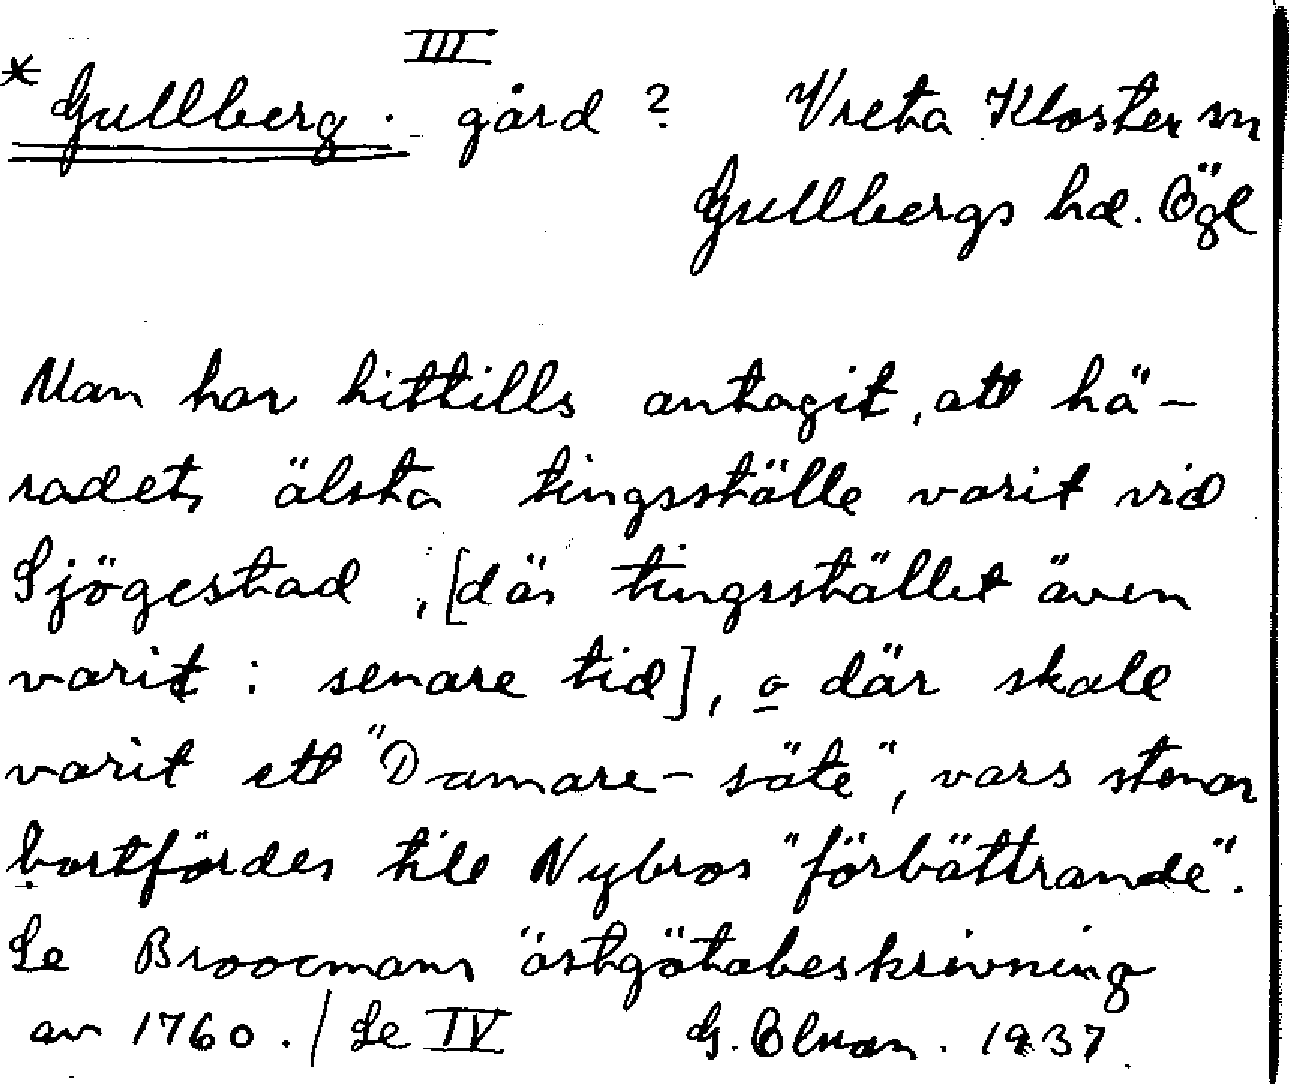 III
* Gullberg. gård? Vreta Kloster sn
Gullbergs hd. Ögl
Man har hittills antagit, att hä-
radets älsta tingsställe varit vid
Sjögestad, [där tingsstället även
varit i senare tid], o där skall
varit ett "Domare-säte", vars stenar
bortfördes till Nybros "förbättrande".
Se Broocmans östgötabeskrivning
av 1760. / Se IV G. 1937